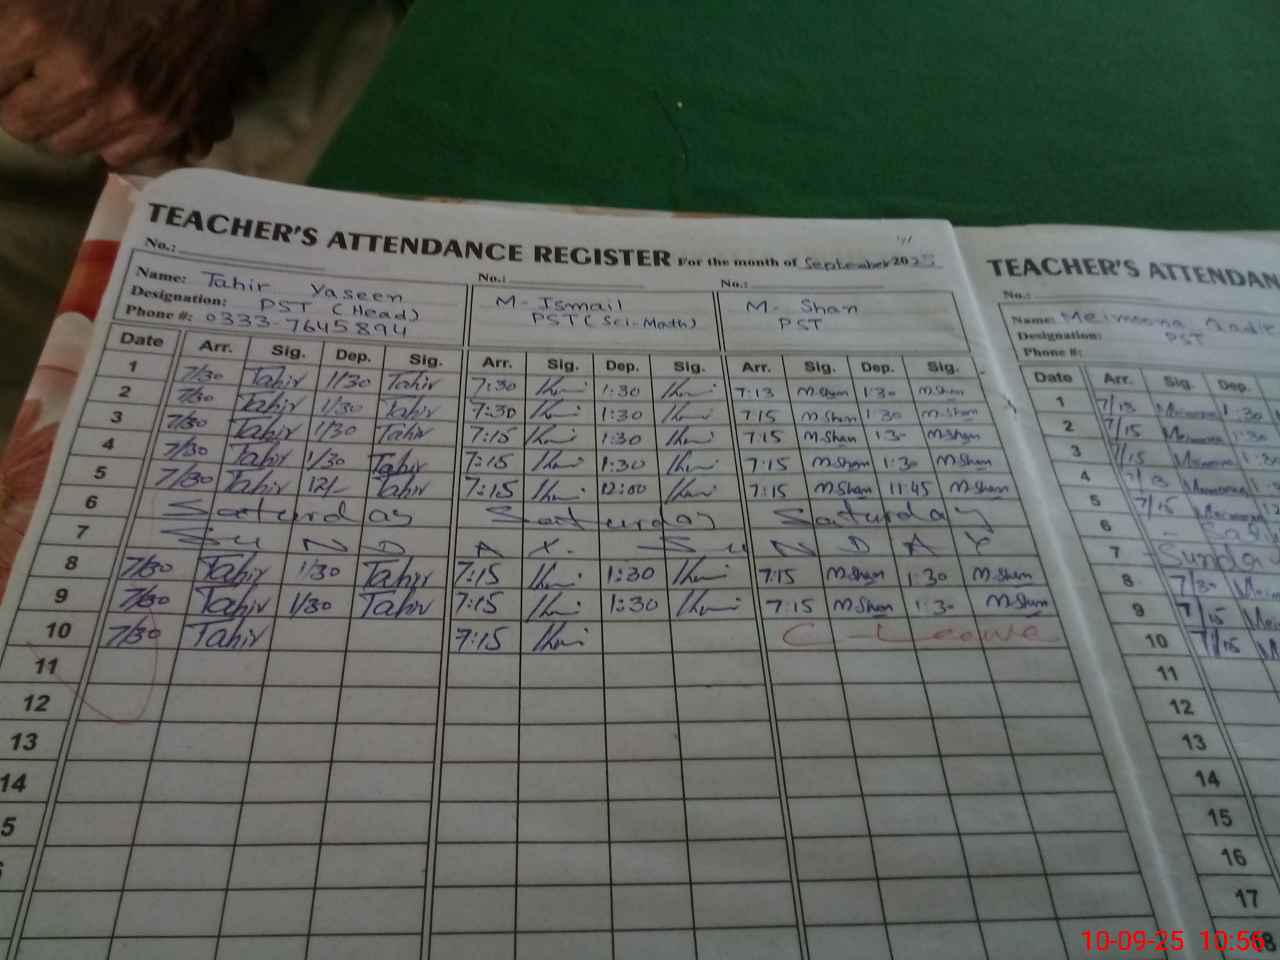 TEACHER'S ATTENDANCE REGISTER For the month of September 2025
No.: No.: No.:
Name: Tahir Yaseen M-Ismail M- Shan
Designation: PST (Head) PST (Sci-Math) PST
Phone #: 0333-7645894
Date Arr. Sig. Dep. Sig. Arr. Sig. Dep. Sig. Arr. Sig. Dep. Sig.
1 7/30 Tahir 1/30 Tahir 7:30 1:30 7:13 M.Shan 1:30 M.Shan
2 7/30 Tahir 1/30 Tahir 7:30 1:30 7:15 M.Shan 1:30 M.Shan
3 7/30 Tahir 1/30 Tahir 7:15 1:30 7:15 M.Shan 1:30 M.Shan
4 7/30 Tahir 1/30 Tahir 7:15 1:30 7:15 M.Shan 1:30 M.Shan
5 7/30 Tahir 12/- Tahir 7:15 12:00 7:15 M.Shan 11:45 M.Shan
6 Saturday Saturday Saturday
7 Su N D A Y. Su N D A Y
8 7/30 Tahir 1/30 Tahir 7:15 1:30 7:15 M.Shan 1:30 M.Shan
9 7/30 Tahir 1/30 Tahir 7:15 1:30 7:15 M.Shan 1:30 M.Shan
10 7/30 Tahir 7:15 C-Leave
11
12
13
14
5
TEACHER'S ATTENDAN
No.:
Name:
Designation: PST
Phone #:
Date Arr. Sig. Dep.
1 7/13 1:30
2 7/15 1:30
3 7/15
4
5 7/15
6
7 Sunda
8 7/30
9 7/15
10 7/15
11
12
13
14
15
16
17
18
10-09-25 10:56